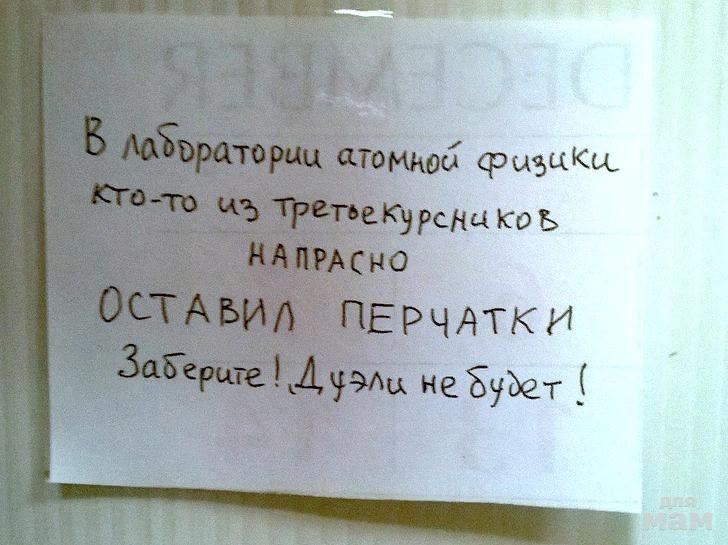 DECEMBER
В лаборатории атомной физики
кто-то из третьекурсников
НАПРАСНО
ОСТАВИЛ ПЕРЧАТКИ
Заберите! Дуэли не будет!
для
мам